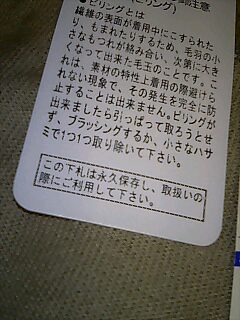 (ピリング)
●ピリングとは
繊維の表面が着用中にこすられた
り、もまれたりするため、毛羽の小
さなもつれが絡み合い、次第に大き
くなって出来た毛玉のことです。こ
れは、素材の特性上着用の際避けら
れない現象で、その発生を完全に防
止することは出来ません。ピリングが
出来ましたら引っぱって取ろうとせ
ず、ブラッシングするか、小さなハサ
ミで1つ1つ取り除いて下さい。
この下札は永久保存し、取扱いの
際にご利用して下さい。